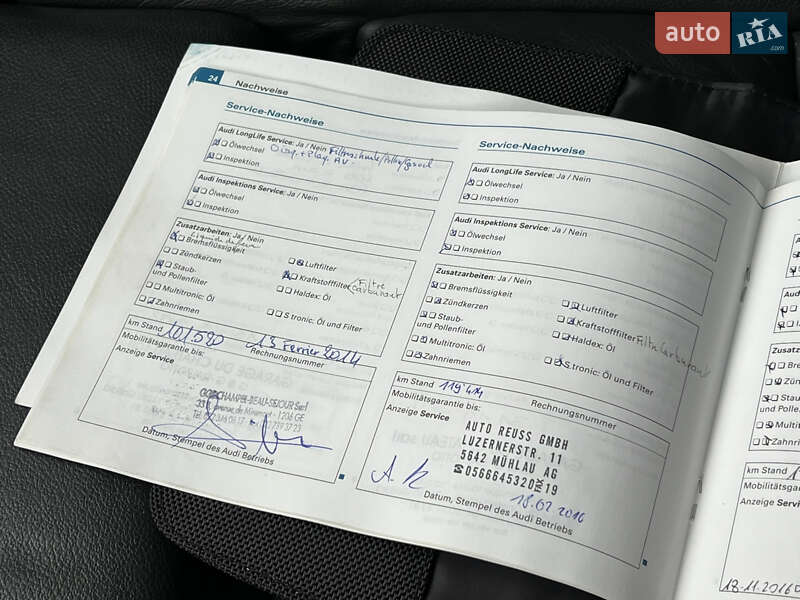 auto RIA.com
24
Nachweise
Service-Nachweise
Audi LongLife Service: Ja / Nein
Ölwechsel
Inspektion
Audi Inspektions Service: Ja / Nein
Ölwechsel
Inspektion
Zusatzarbeiten: Ja / Nein
Bremsflüssigkeit
Zündkerzen
Luftfilter
Staub-
und Pollenfilter
Kraftstofffilter
Filtre
carburant
Multitronic: Öl
Haldex: Öl
Zahnriemen
S tronic: Öl und Filter
km Stand 101.520
13 Fevrier 2014
Mobilitätsgarantie bis:
Rechnungsnummer
Anzeige Service
Datum, Stempel des Audi Betriebs
Service-Nachweise
Audi LongLife Service: Ja / Nein
Ölwechsel
Inspektion
Audi Inspektions Service: Ja / Nein
Ölwechsel
Inspektion
Zusatzarbeiten: Ja / Nein
Bremsflüssigkeit
Luftfilter
Zündkerzen
Kraftstofffilter
Staub-
und Pollenfilter
Haldex: Öl
Multitronic: Öl
Zahnriemen
S tronic: Öl und Filter
km Stand 119'414
Mobilitätsgarantie bis:
Rechnungsnummer
Anzeige Service
AUTO REUSS GMBH
LUZERNERSTR. 11
5642 MÜHLAU AG
0566645320 FAX 19
18.02 2016
Datum, Stempel des Audi Betriebs
Zusatz
und Pollen
Multitro
Zahnri
km Stand
Mobilitätsga
Anzeige Serv
18-11.2016